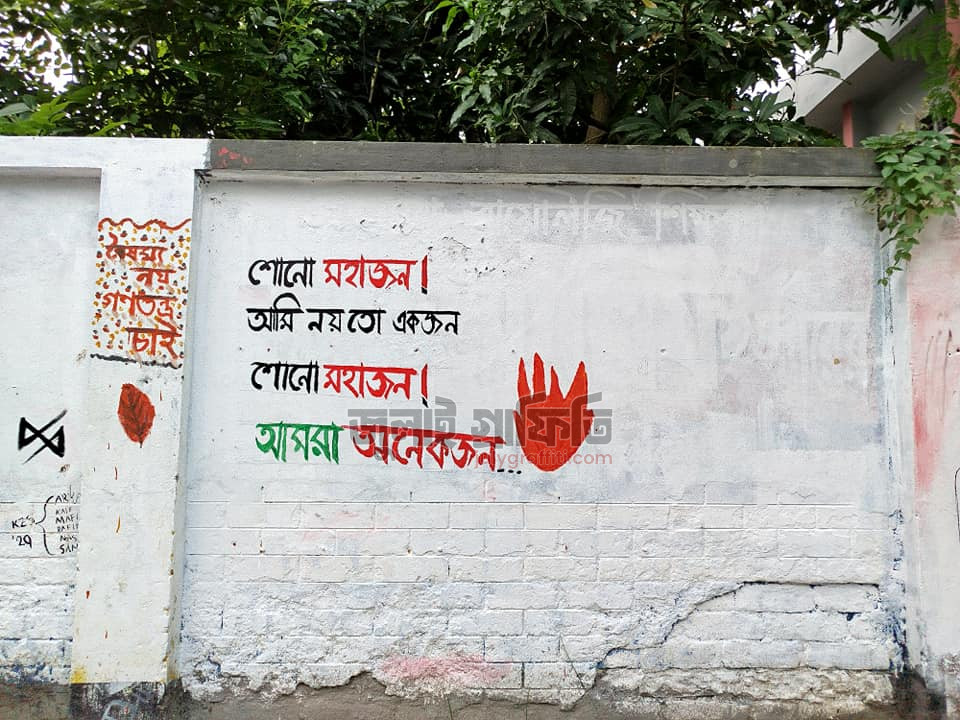 বৈষম্য
নয়
গণতন্ত্র
চাই
শোনো মহাজন!
আমি নয় তো একজন
শোনো মহাজন!
আমরা অনেকজন...
জুলাই গ্রাফিতি
K2
'29